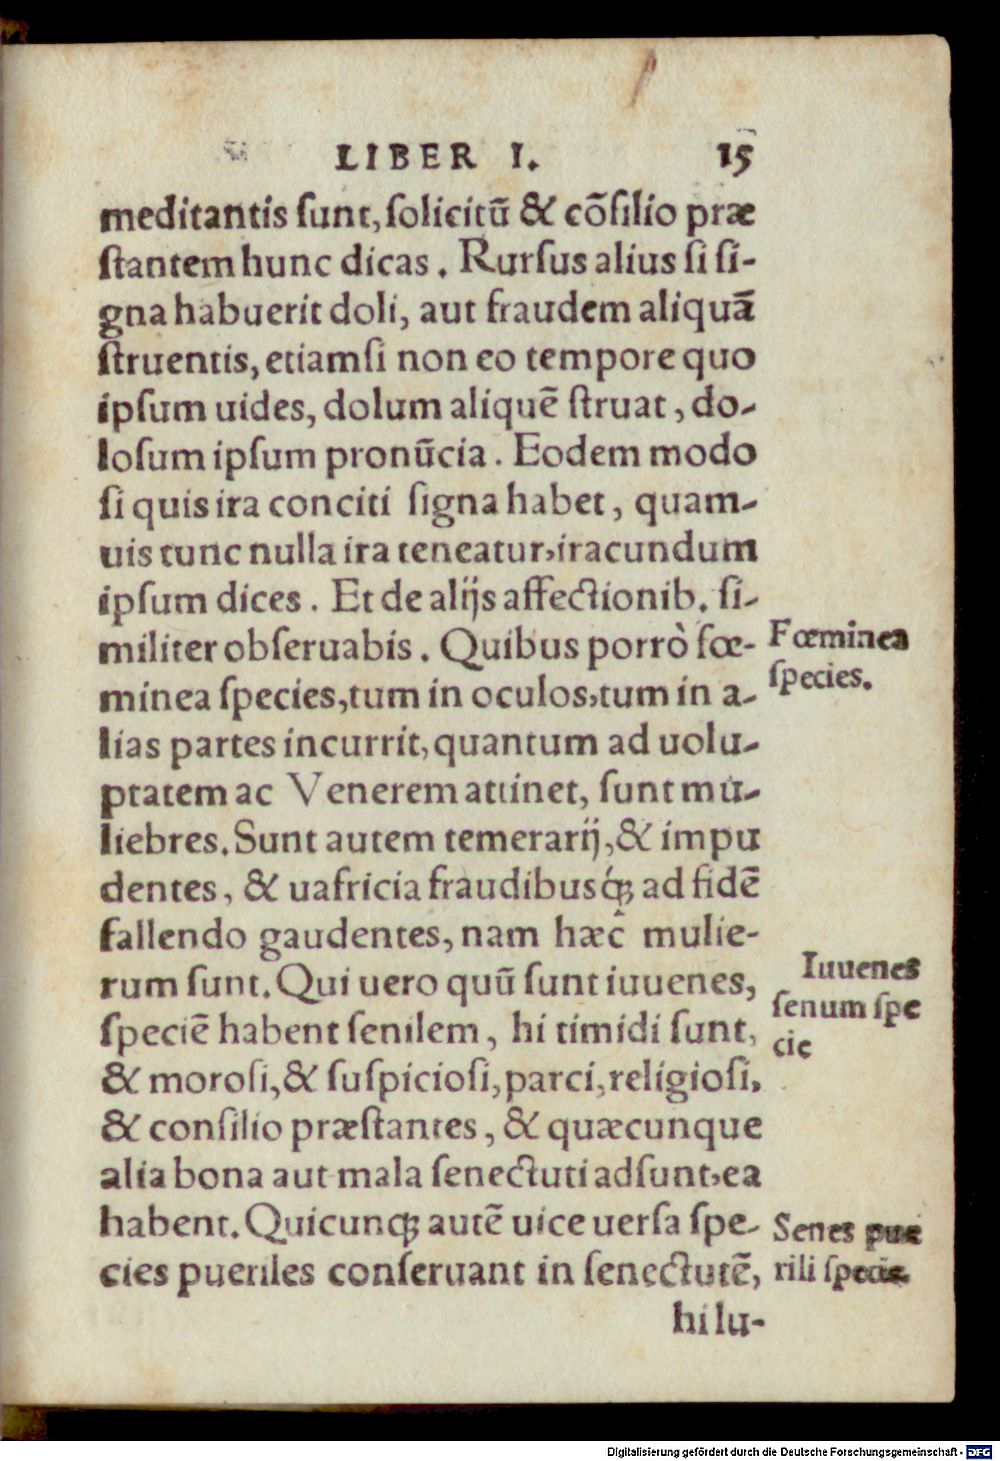 LIBER I. 15
meditantis sunt, solicitū & cōsilio præ
stantem hunc dicas. Rursus alius si si-
gna habuerit doli, aut fraudem aliquā
struentis, etiamsi non eo tempore quo
ipsum uides, dolum aliquē struat, do-
losum ipsum pronūcia. Eodem modo
si quis ira conciti signa habet, quam-
uis tunc nulla ira teneatur, iracundum
ipsum dices. Et de alijs affectionib. si-
militer obseruabis. Quibus porrò fœ-
minea species, tum in oculos, tum in a-
lias partes incurrit, quantum ad uolu-
ptatem ac Venerem attinet, sunt mu-
liebres. Sunt autem temerarij, & impu
dentes, & uafricia fraudibusq́ꝫ ad fidē
fallendo gaudentes, nam hæc mulie-
rum sunt. Qui uero quū sunt iuuenes,
speciē habent senilem, hi timidi sunt,
& morosi, & suspiciosi, parci, religiosi,
& consilio præstantes, & quæcunque
alia bona aut mala senectuti adsunt, ea
habent. Quicunqꝫ autē uice uersa spe-
cies pueriles conseruant in senectutē,
hi lu-
Fœminea
species.
Iuuenes
senum spe
cie
Senes pue
rili specie.
Digitalisierung gefördert durch die Deutsche Forschungsgemeinschaft - DFG